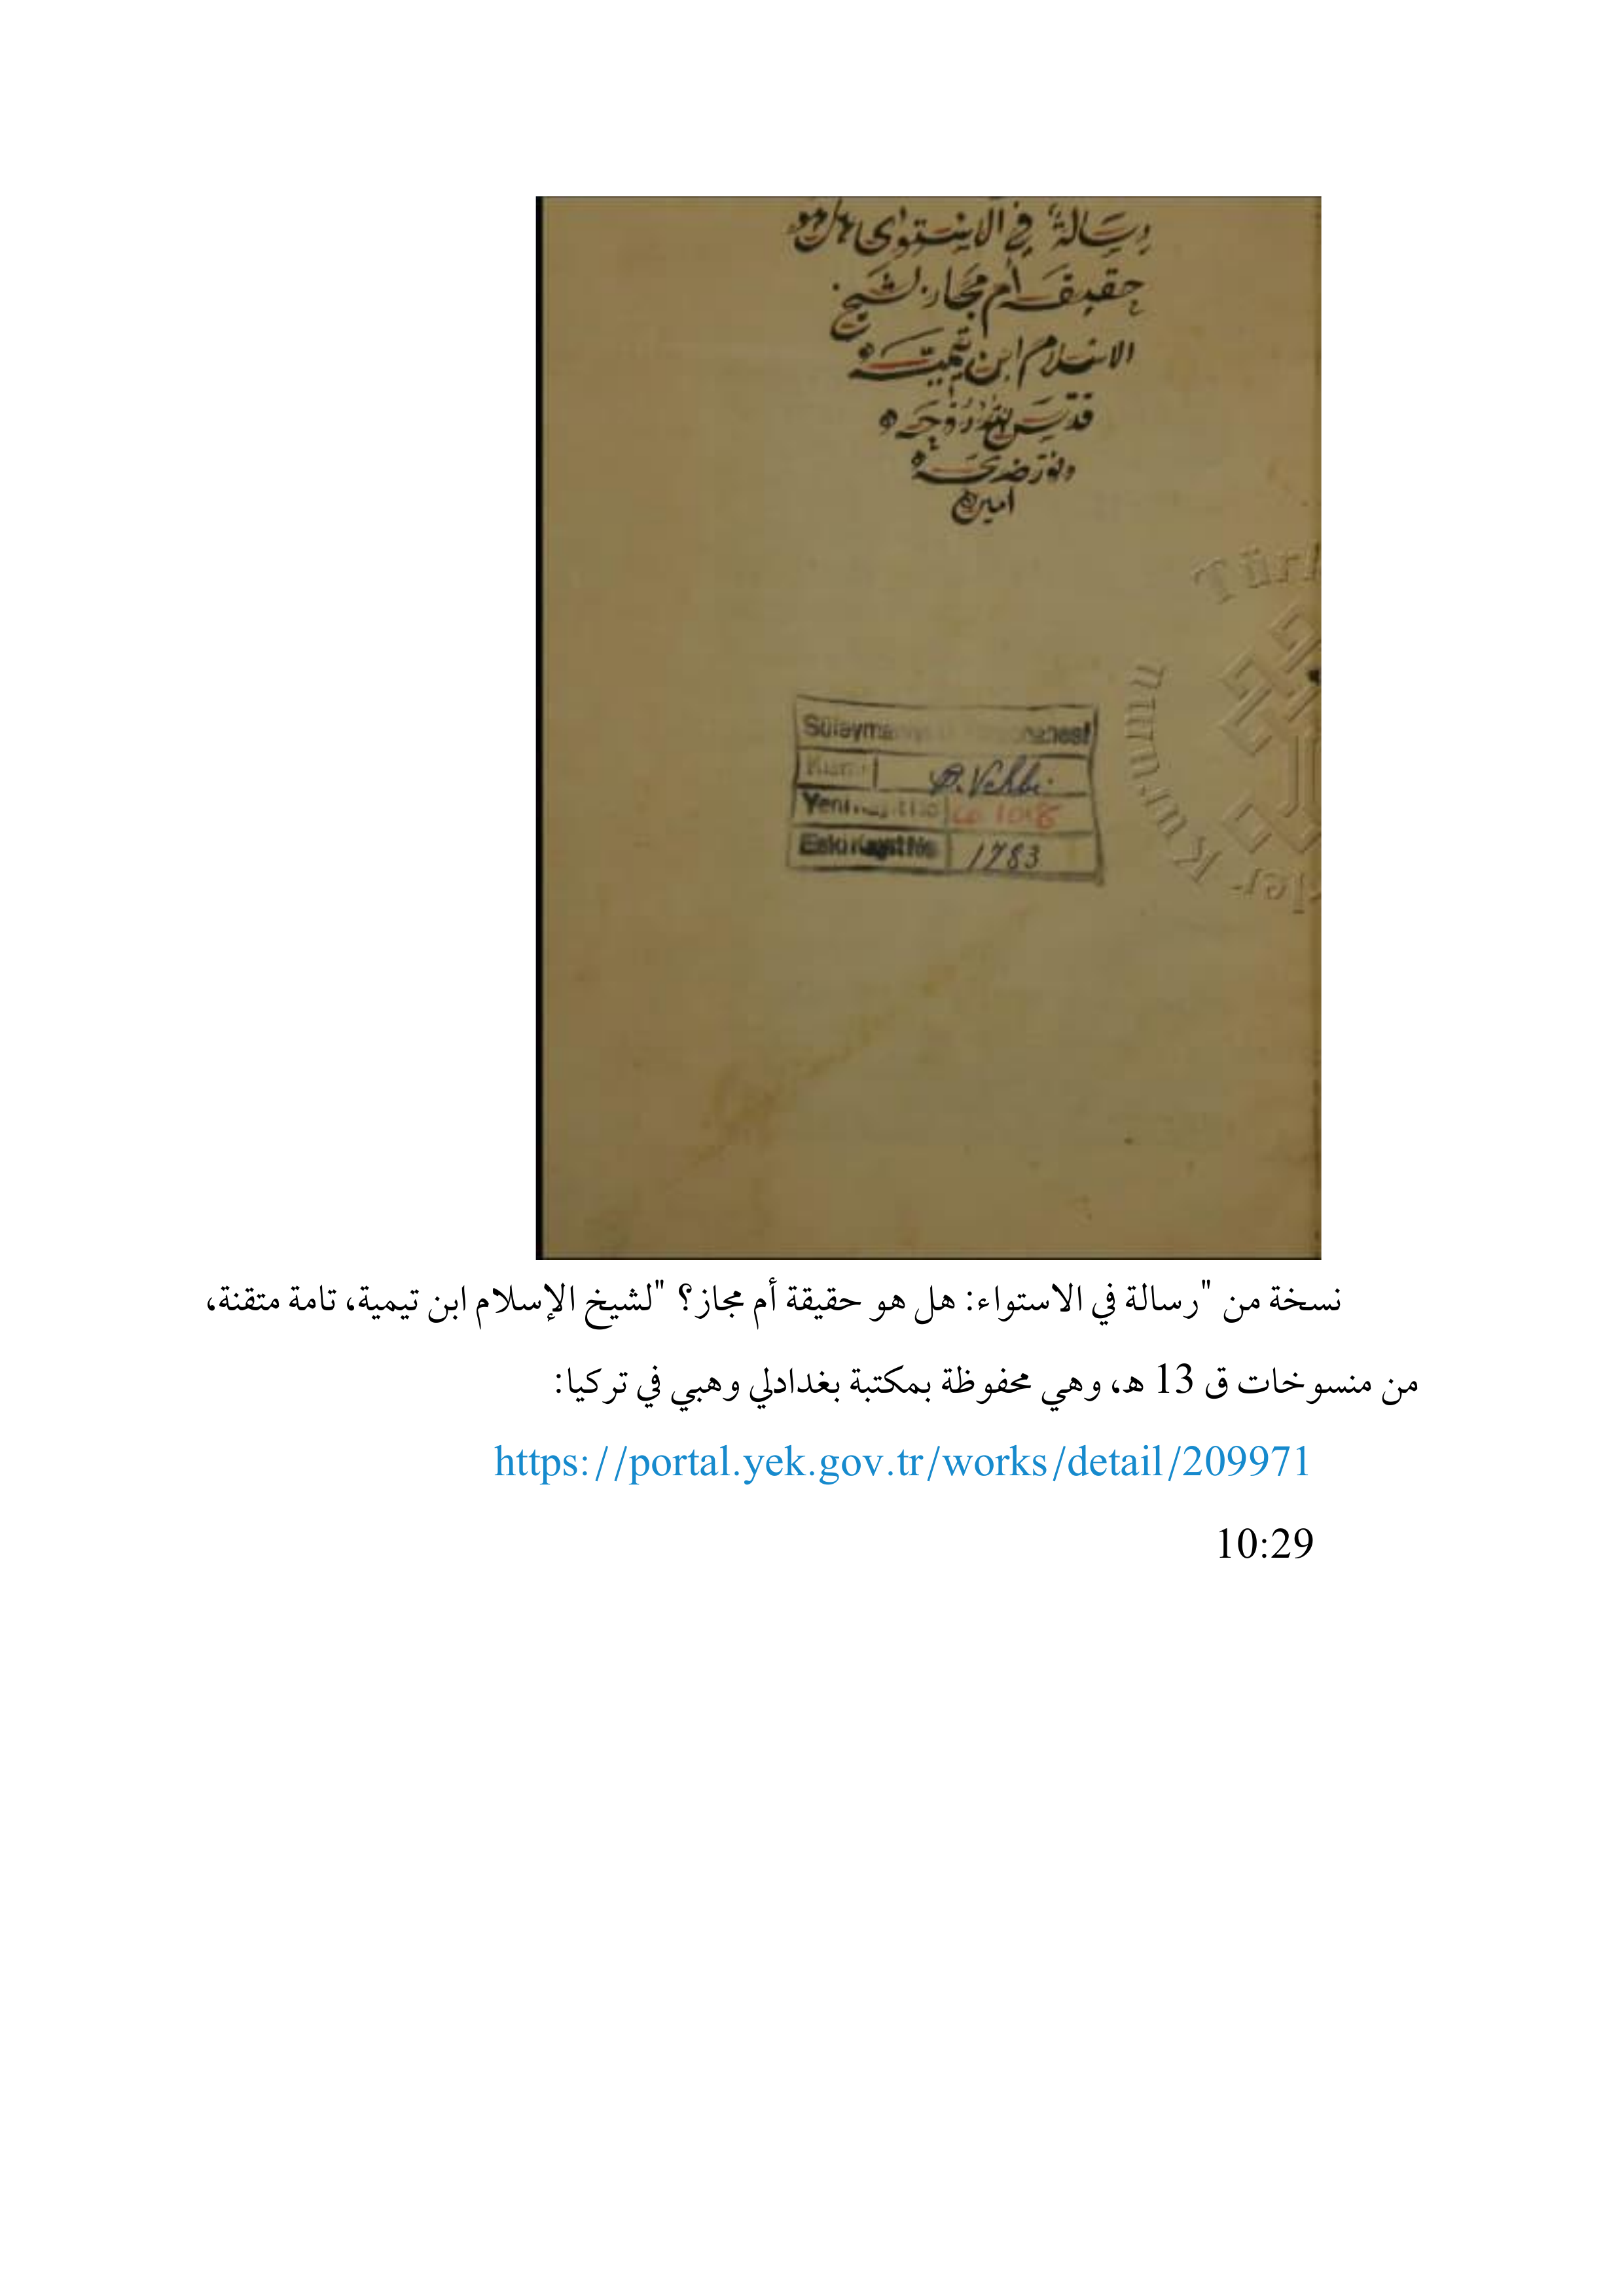 رسالة في الاستوى هل هو
حقيقة أم مجاز لشيخ
الاسلام ابن تيمية
قدس الله روحه
ونور ضريحه
امين
Türk
Süleymaniye
B. Vehbi
Yeni
Eski Kayıt No 1783
نسخة من "رسالة في الاستواء: هل هو حقيقة أم مجاز؟ "لشيخ الإسلام ابن تيمية، تامة متقنة،
من منسوخات ق 13 هـ، وهي محفوظة بمكتبة بغدادلي وهبي في تركيا:
https://portal.yek.gov.tr/works/detail/209971
10:29